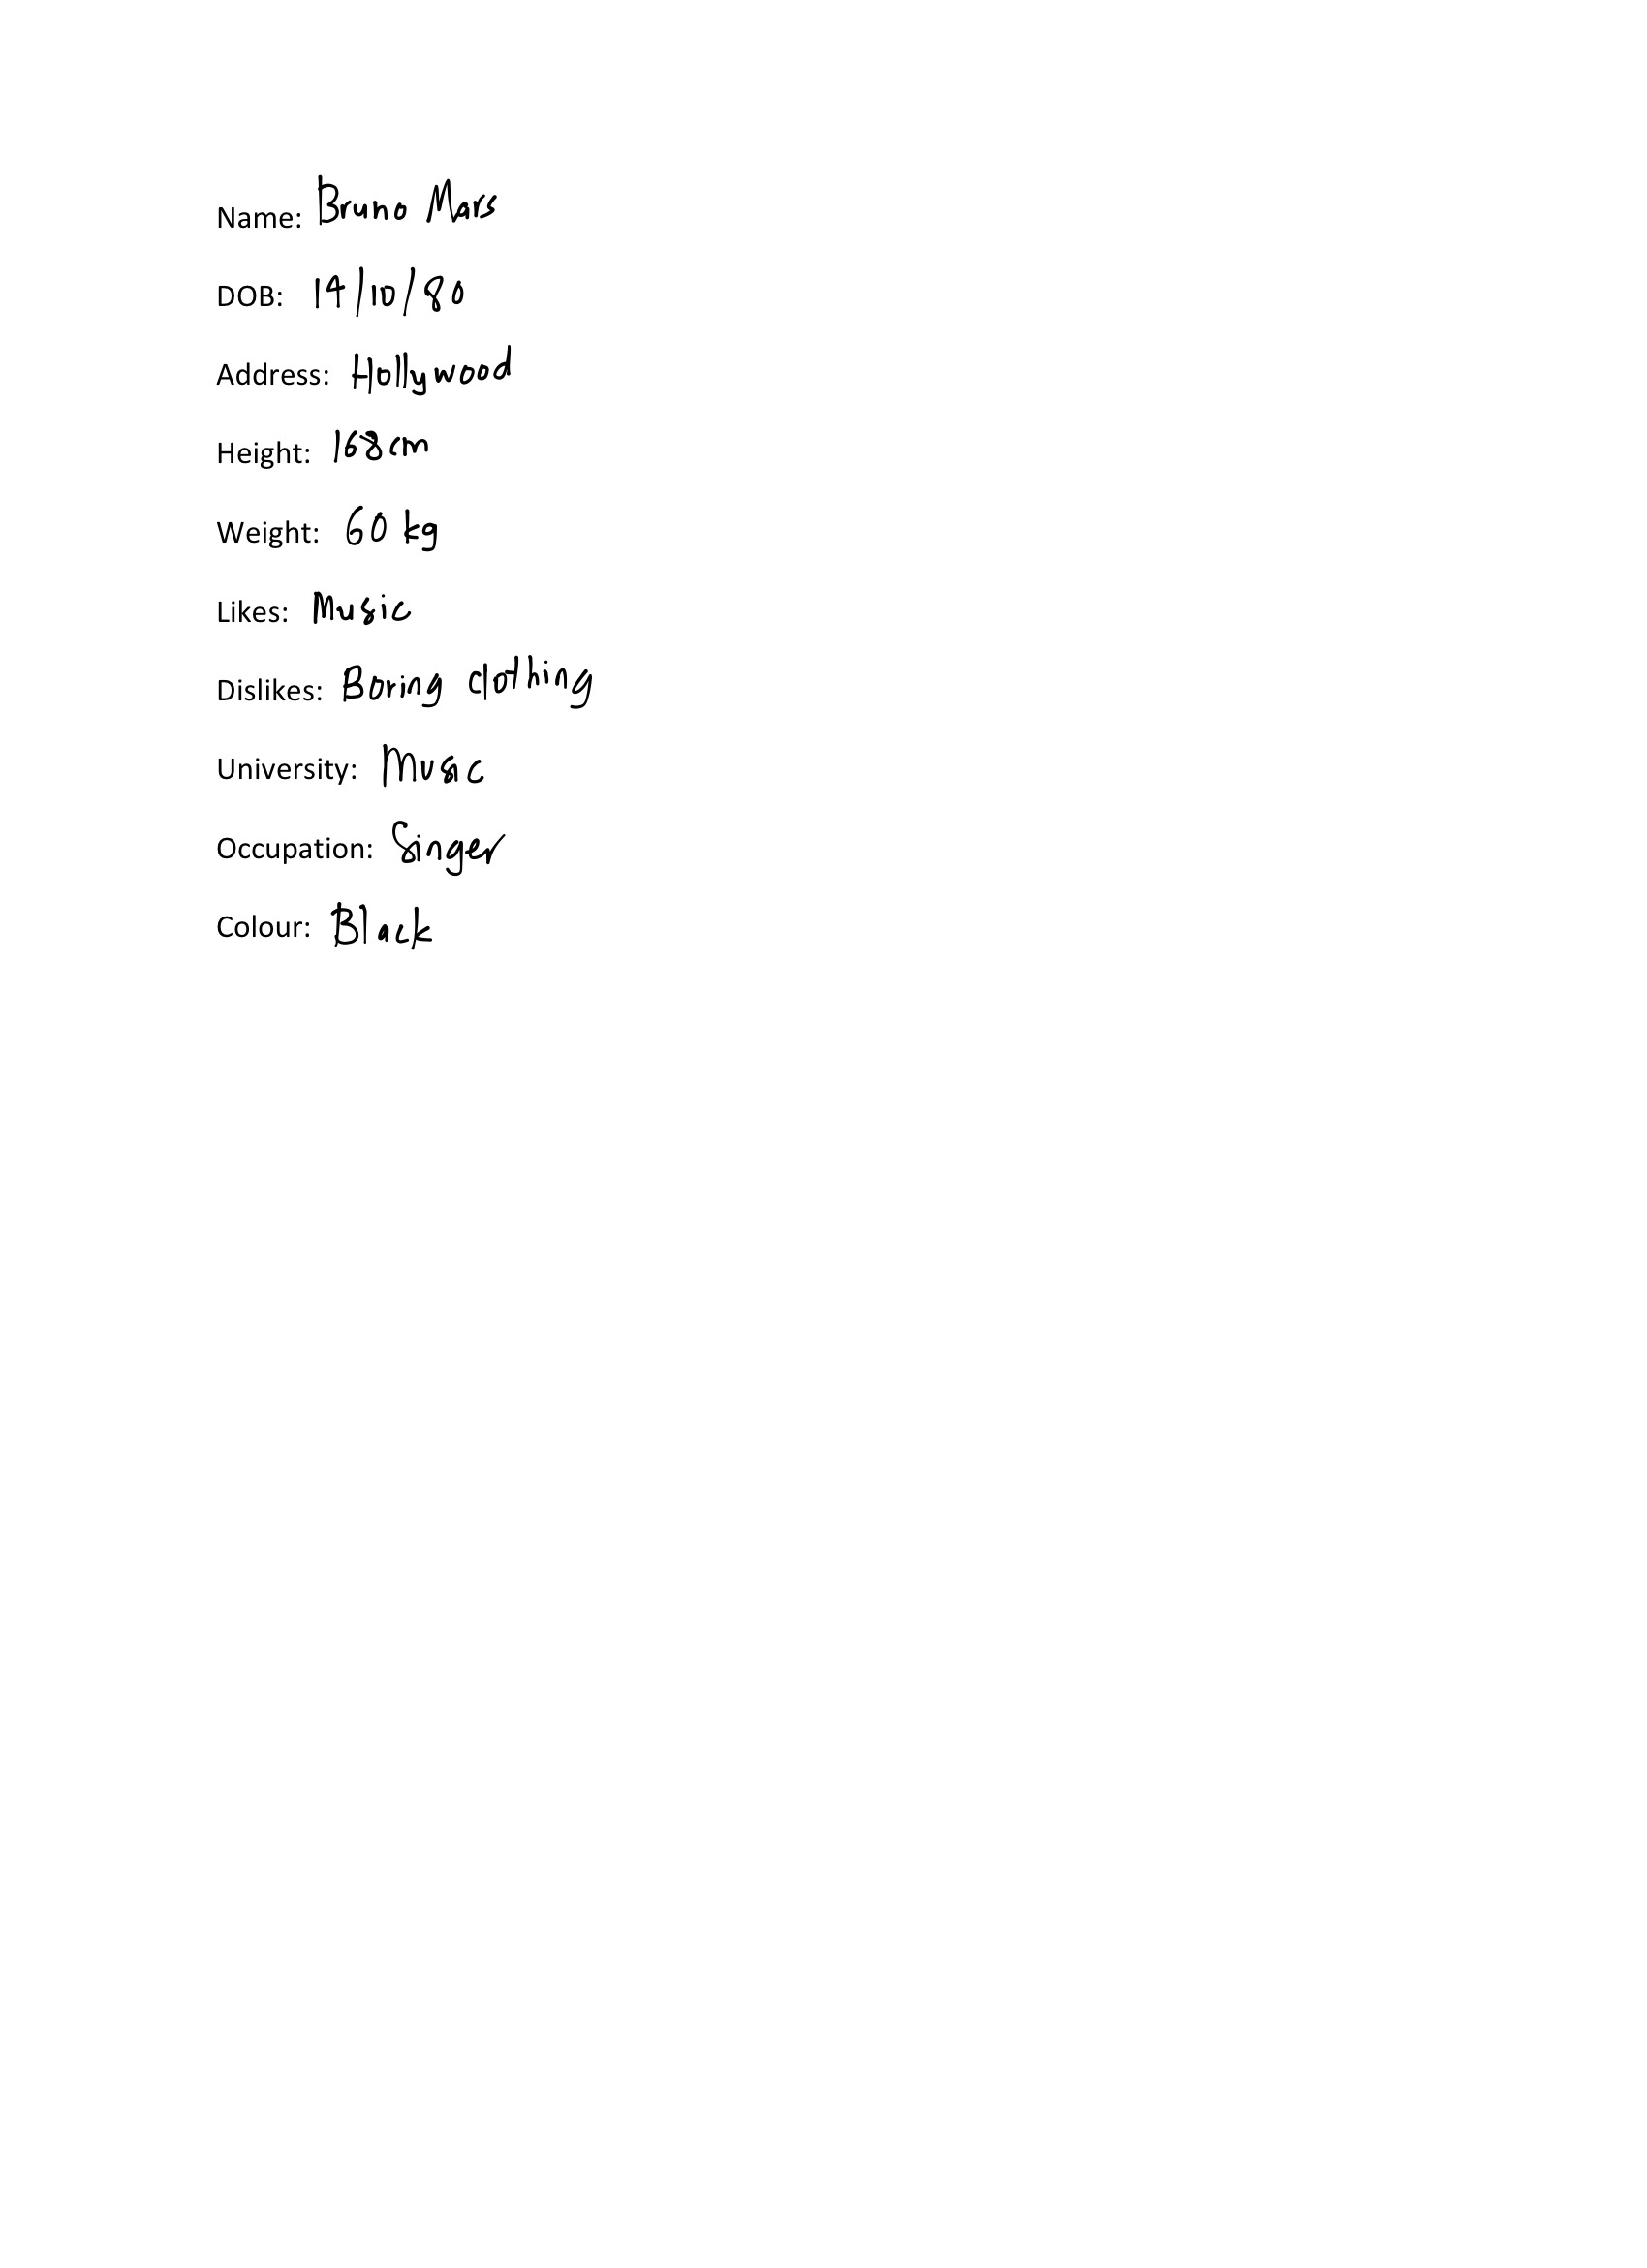 Name: Bruno Mars
DOB: 14/10/80
Address: Hollywood
Height: 168cm
Weight: 60 kg
Likes: Music
Dislikes: Boring clothing
University: Music
Occupation: Singer
Colour: Black